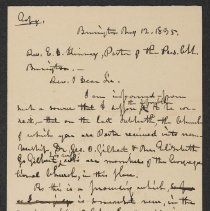 Copy.
Burlington Aug 12. 1835.
Rev. E. D. Kinney, Pastor of the Pres. Ch.
Burlington.
Rev. & Dear Sir.
I am informed from
such a source that I
rect, that on the last Sabbath, the Church
of which you are Pastor received into mem-
bership Dr. Geo. D. Gilbert & Mrs. Elizabeth
G. Gilbert, who are members of the Congrega-
tional Church, in this place.
As this is a proceeding which,
is somewhat new, in the